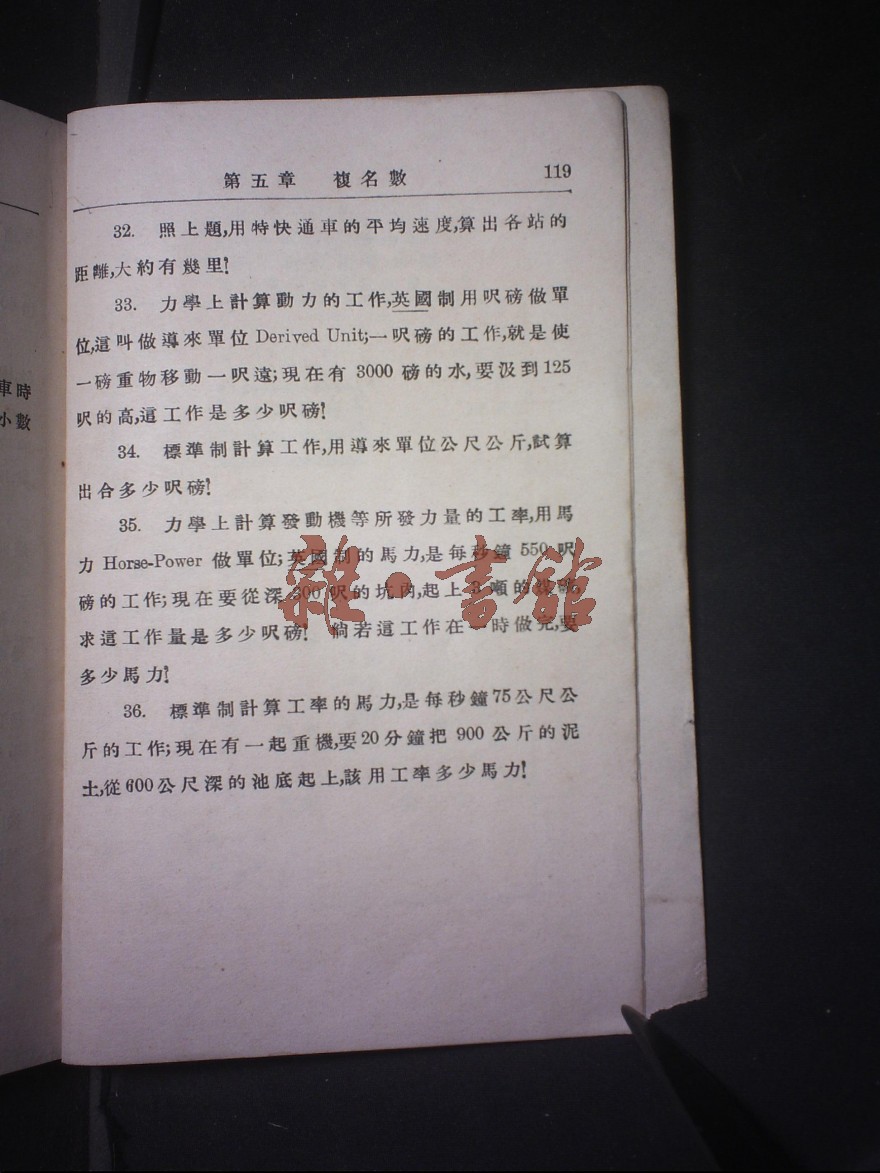 第五章 複名數 119
32. 照上題,用特快通車的平均速度,算出各站的
距離,大約有幾里?
33. 力學上計算動力的工作,英國制用呎磅做單
位,這叫做導來單位 Derived Unit;一呎磅的工作,就是使
一磅重物移動一呎遠;現在有 3000 磅的水,要汲到 125
呎的高,這工作是多少呎磅?
34. 標準制計算工作,用導來單位公尺公斤,試算
出合多少呎磅?
35. 力學上計算發動機等所發力量的工率,用馬
力 Horse-Power 做單位;英國制的馬力,是每秒鐘 550 呎
磅的工作;現在要從深 300 呎的坑內,起上 3 噸的
求這工作量是多少呎磅? 倘若這工作在一時做完,要
多少馬力?
36. 標準制計算工率的馬力,是每秒鐘 75 公尺公
斤的工作;現在有一起重機,要 20 分鐘把 900 公斤的泥
土,從 600 公尺深的池底起上,該用工率多少馬力?
車時
小數
雜·書館